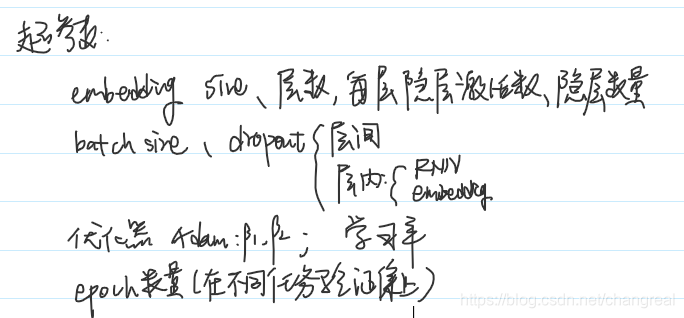 超参数:
embedding size、层数,每层隐层激活数、隐层数量
batch size、dropout { 层间
层内: { RNN
embeddig
优化器 Adam: β1, β2; 学习率
epoch数量(在不同任务验证集上)
https://blog.csdn.net/changreal